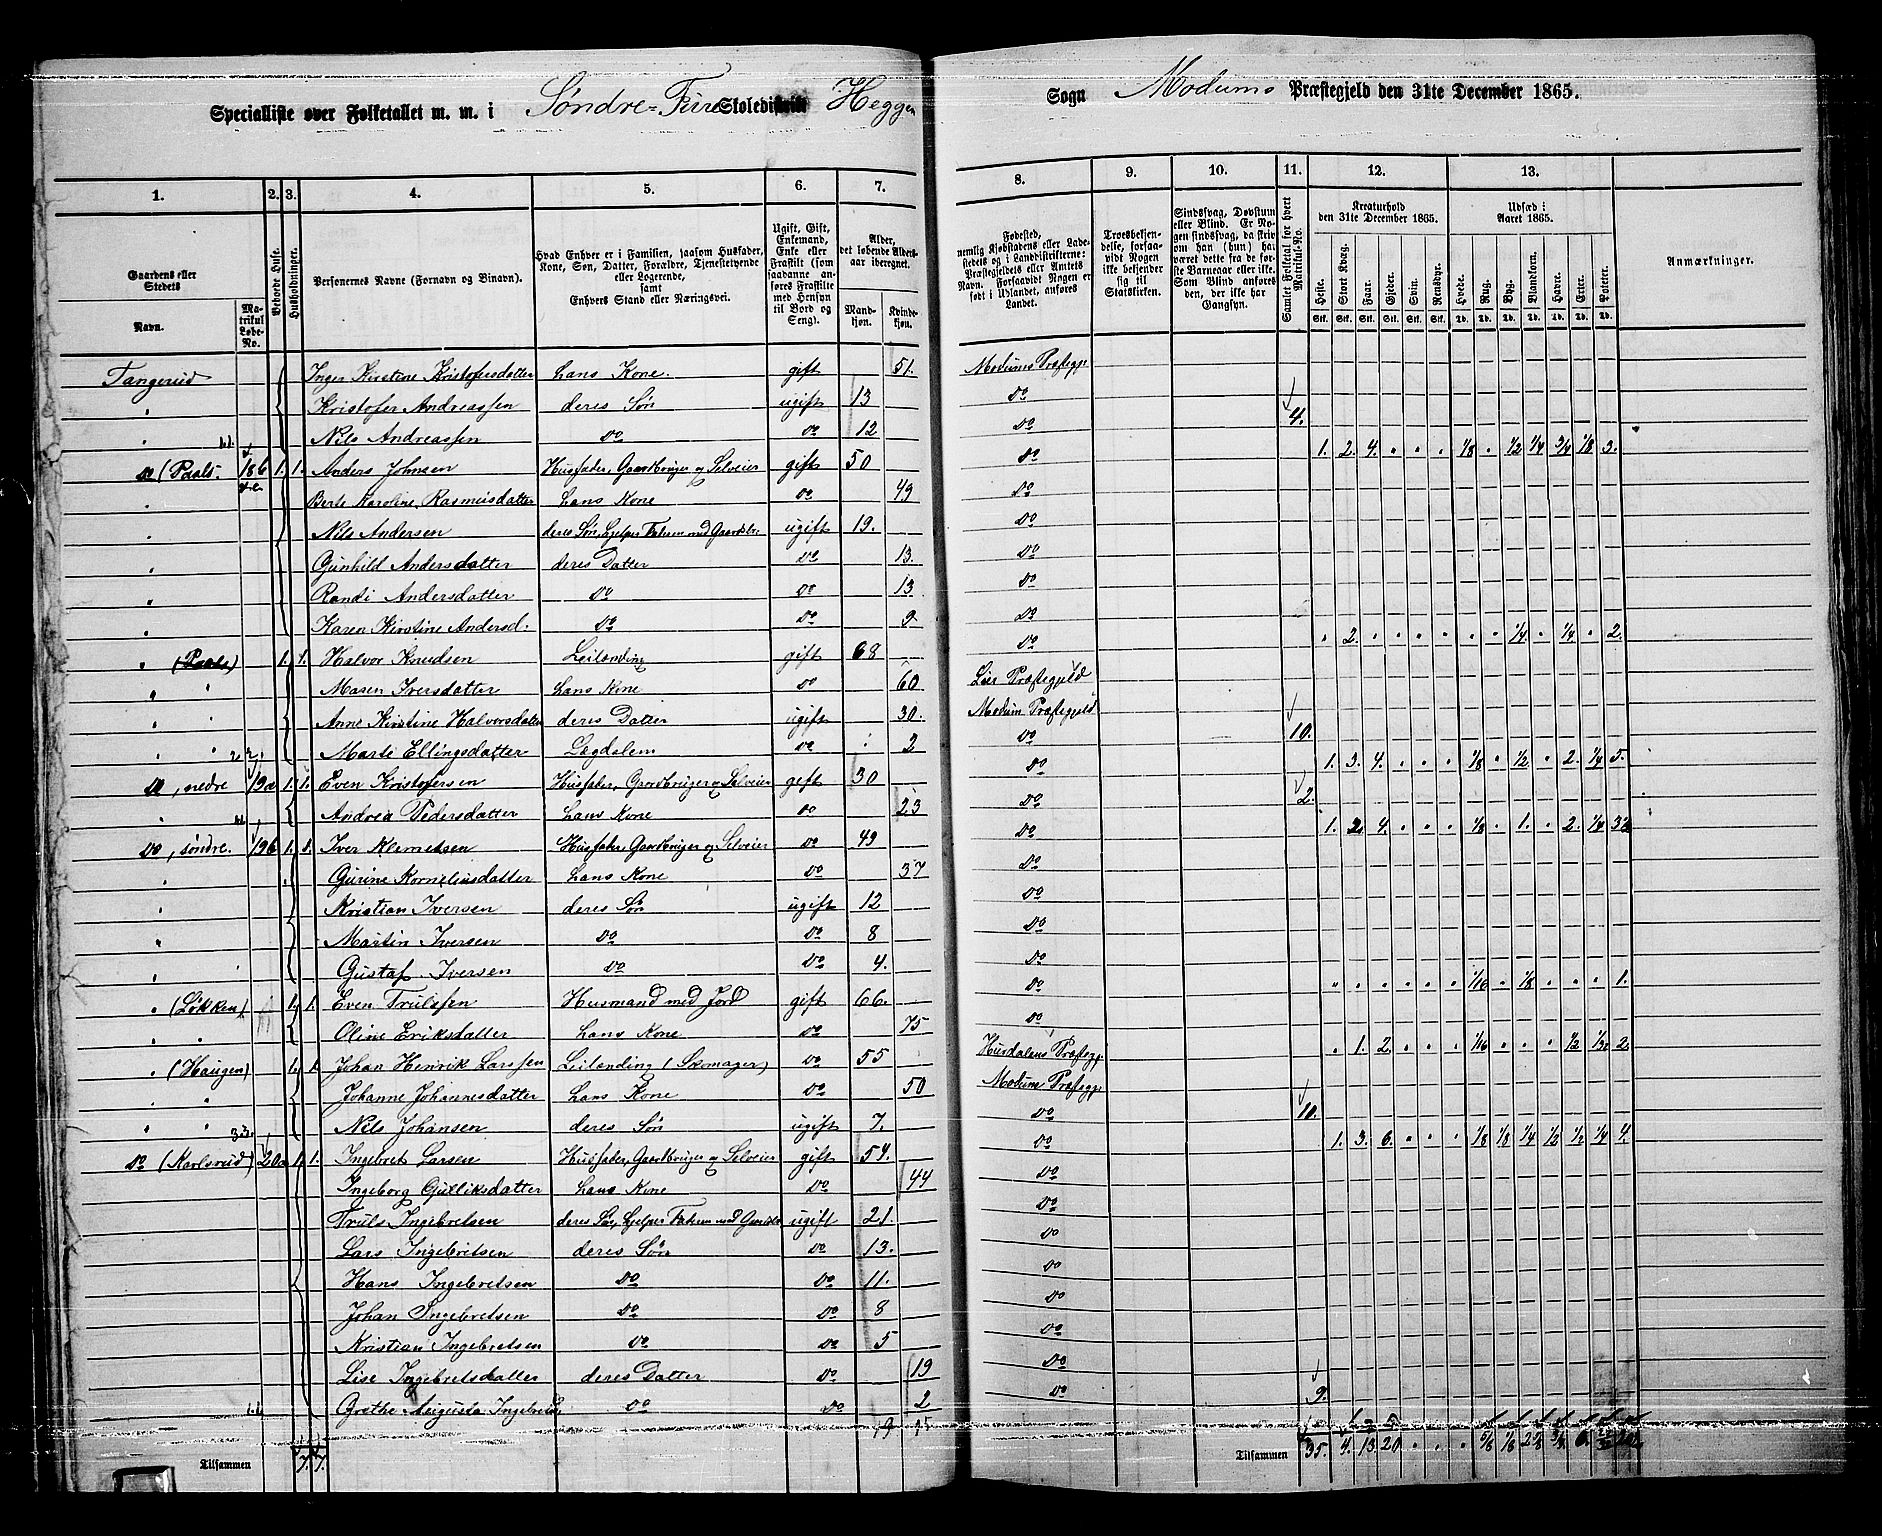 Specialliste over Folketallet m. m. i Søndre-Fure Skoledistrikt Heggen Sogn Modums Præstegjeld den 31te December 1865.
1. 2. 3. 4. 5. 6. 7. 8. 9. 10. 11. 12. 13.
Gaardens eller Stedets
Navn.
Matrikul Løbe-No.
Beboede Huse.
Husholdninger.
Personernes Navne (Fornavn og Binavn).
Hvad Enhver er i Familien, saasom Husfader, Kone, Søn, Datter, Forældre, Tjenestetyende eller Logerende, samt Enhvers Stand eller Næringsvei.
Ugift, Gift, Enkemand, Enke eller Fraskilt (som saadanne anføres Fraskilte med Hensyn til Bord og Seng).
Alder, det løbende Aldersaar iberegnet.
Mandkjøn. Kvindekjøn.
Fødested, nemlig Kjøbstadens eller Ladestedets og i Landdistrikterne: Præstegjeldets eller Amtets Navn. Forsaavidt Nogen er født i Udlandet, anføres Landet.
Troesbekjendelse, forsaavidt Nogen ikke bekjender sig til Statskirken.
Sindssvag, Døvstum eller Blind. Er Nogen sindssvag, da skrives om han (hun) har været dette fra de første Barneaar eller ikke. Som Blind anføres den, der ikke har Gangsyn.
Samlet Folketal for hvert Matrikul-No.
Kreaturhold den 31te December 1865.
Heste. Stort Kvæg. Faar. Gjeder. Svin. Rensdyr.
Stk. Stk. Stk. Stk. Stk. Stk.
Udsæd i Aaret 1865.
Hvede. Rug. Byg. Blandkorn. Havre. Erter. Poteter.
Td. Td. Td. Td. Td. Td. Td.
Anmærkninger.
Tangerud Inger Kirstine Kristofersdatter hans Kone. gift 51. Modums Præstegj.
" Kristofer Andreassen deres Søn ugift 13 do
" Nils Andreassen do do 12 do 4.
do (Paals- 186 1. 1. Anders Johnsen Husfader, Gaardbruger og Selveier gift 50 do 1. 2. 4. " " " 1/8 " 1/2 1/4 3/4 1/8 3.
" Berte Karoline Rasmusdatter hans Kone do 49 do
" Nils Andersen deres Søn, hjelper Faderen med Gaardsbr. ugift 19. do
" Gunhild Andersdatter deres Datter do 13. do
" Randi Andersdatter do do 13 do
" Karen Kirstine Andersd. do do 9 do
" (Paals) 1. 1. Halvor Knudsen Leilænding gift 68 do " 2. " " " " " " 1/4 " 1/4 " 2.
" " Maren Iversdatter hans Kone do 60 Lier Præstegjeld
" " Anne Kirstine Halvorsdatter deres Datter ugift 30. Modum Præstegjeld
" " Marte Ellingsdatter Lægdalem do 2 do 10.
do, nedre 19a 1. 1. Even Kristofersen Husfader, Gaardbruger og Selveier gift 30 do 1. 3. 4. " " " 1/8 " 1/2 " 2. 1/4 5.
" Andrea Pedersdatter hans Kone do 23 do 2.
do, søndre. 196 1. 1. Iver Klemetsen Husfader, Gaardbruger og Selveier do 49 do 1. 2. 4. " " " 1/8 " 1. " 2. 1/4 3 1/2
" Gurine Kornelius­datter hans Kone do 37 do
" Kristian Iversen deres Søn ugift 12 do
" Martin Iversen do do 8 do
" Gustaf Iversen do do 4. do
" (Løkken) 1. 1. Even Trulssen Husmand med Jord gift 66. do " " " " " " 1/16 " 1/8 " " " 1.
" " Oline Eriksdatter hans Kone do 75 do
" (Haugen) 1. 1. Johan Henrik Larssen Leilænding (Skomager) do 55 Hurdalens Præstegj. " 1. 2. " " " 1/16 " " " 1/2 2.
" " Johanne Johannesdatter hans Kone do 50 Modum Præstegj.
" " Nils Johansen deres Søn ugift 7. do 10.
do (Karlsrud) 20a 1. 1. Ingebret Larsen Husfader, Gaardbruger og Selveier gift 54. do 1. 3. 6. " " " 1/8 1/8 1/4 1/2 1/2 1/4 4.
Ingeborg Gulliksdatter hans Kone do 44 do
Truls Ingebretsen deres Søn, hjelper Faderen med Gaardsbr ugift 21. do
Lars Ingebretsen deres Søn do 13. do
Hans Ingebretsen do do 11. do
Johan Ingebretsen do do 8 do
Kristian Ingebretsen do do 5 do
Lise Ingebretsdatter deres Datter do 19 do
Grethe Augusta Ingebretsd. do do 2 do 9.
19 15
Tilsammen 7. 7.
Tilsammen 35. 4. 13 20 " " " 5/8 1/8